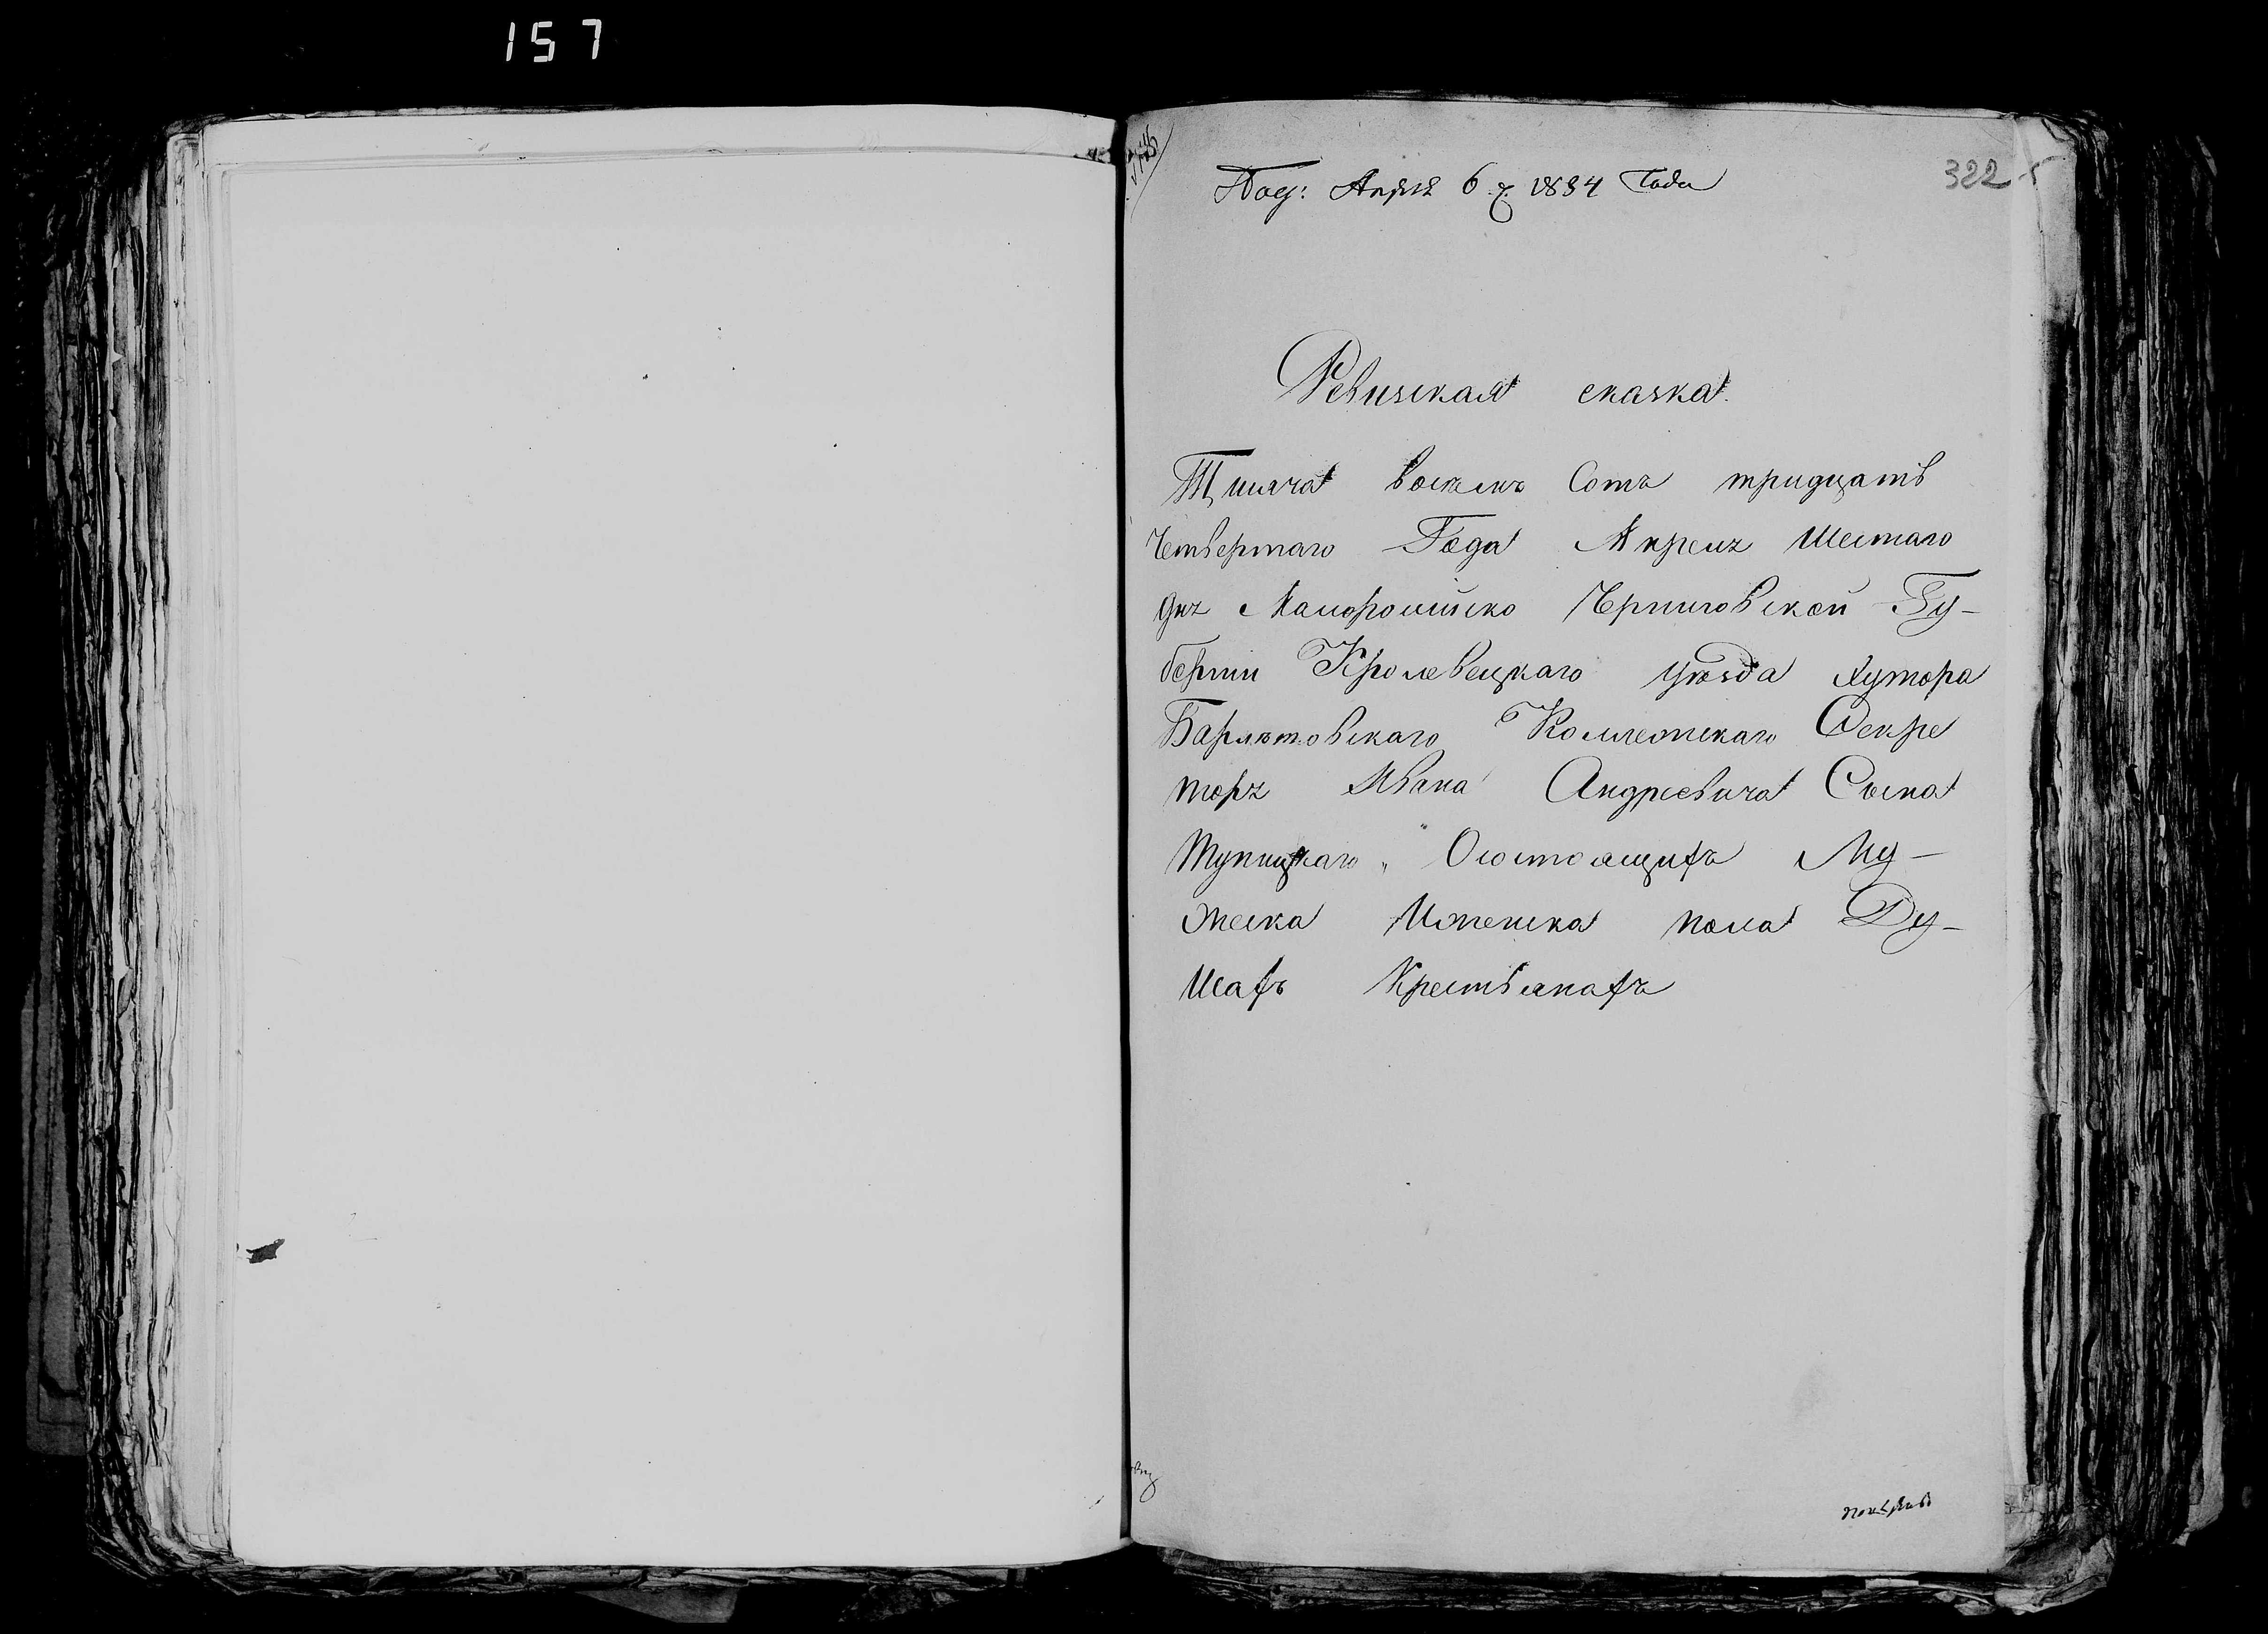 157
Под: Апрля 6 д. 1834 Года
322
Ревизская сказка.
Тисяча восемъ Сотъ тридцать
Четвертаго Года Апреля Шестаго
дня Малоросийско Черниговской Гу-
берни Кролевецкаго уезда Хутора
Барлѣтовскаго Коллежскаго Секре
торя Ивана Андреевича Сына
Тупицкаго „ Осостоящихъ Му-
жеска Иженска пола Ду-
шахъ Крестьянахъ